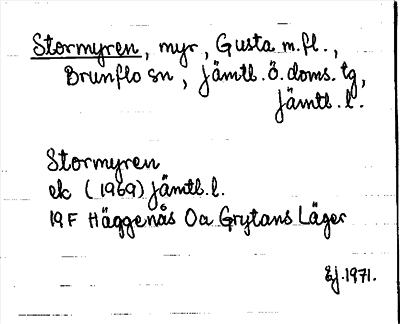 Stormyren, myr, Gusta m.fl.,
Brunflo sn, Jämtl. ö. doms. tg,
Jämtl. l.
Stormyren
ek (1969) Jämtl. l.
19F Häggenås Oa Grytans Läger
Ej. 1971.